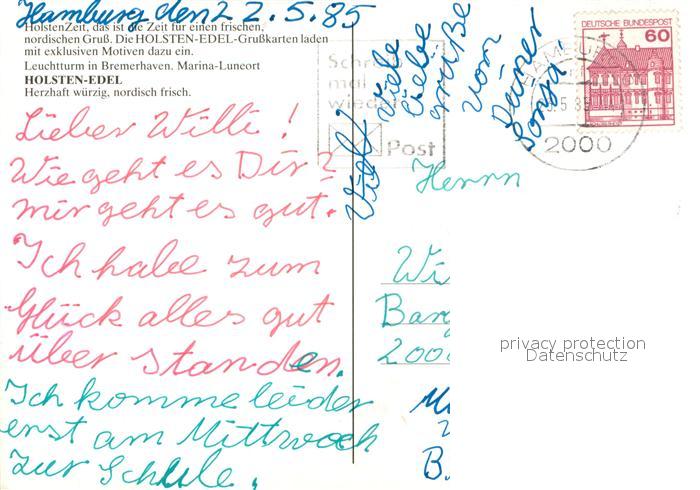 Hamburg den 22.5.85
HolstenZeit, das ist die Zeit für einen frischen,
nordischen Gruß. Die HOLSTEN-EDEL-Grußkarten laden
mit exklusiven Motiven dazu ein.
Leuchtturm in Bremerhaven. Marina-Luneort
HOLSTEN-EDEL
Herzhaft würzig, nordisch frisch.
Lieber Willi!
Wie geht es Dir?
mir geht es gut.
Ich habe zum
Glück alles gut
über standen.
Ich komme leider
erst am Mittwoch
zur Schule.
Viele
liebe
Grüße
von
Sonja
Schreib
mal
wieder
Post
DEUTSCHE BUNDESPOST
60
HAMBURG
2000
Herrn
Wi
Barg
200
B.
privacy protection
Datenschutz